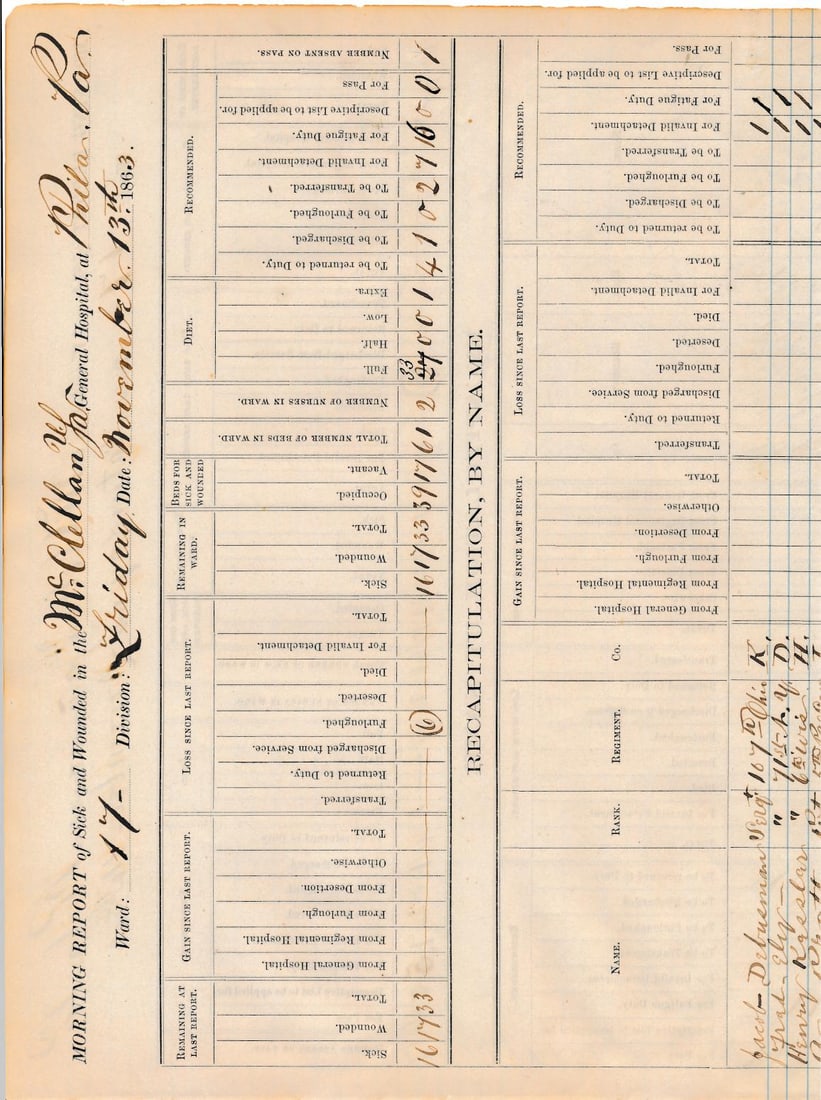 MORNING REPORT of Sick and Wounded in the Mc Clellan U S General Hospital, at Phila. Pa.
Ward: 17- Division: Friday Date: November 13th 1863.
REMAINING AT LAST REPORT.
GAIN SINCE LAST REPORT.
LOSS SINCE LAST REPORT.
REMAINING IN WARD.
BEDS FOR SICK AND WOUNDED
TOTAL NUMBER OF BEDS IN WARD.
NUMBER OF NURSES IN WARD.
DIET.
RECOMMENDED.
NUMBER ABSENT ON PASS.
Sick. 16
Wounded. 17
TOTAL. 33
From General Hospital.
From Regimental Hospital.
From Furlough.
From Desertion.
Otherwise.
TOTAL.
Transferred.
Returned to Duty.
Discharged from Service.
Furloughed. (6)
Deserted.
Died.
For Invalid Detachment.
TOTAL.
Sick. 16
Wounded. 17
TOTAL. 33
Occupied. 39
Vacant. 17
61
2
Full. 33
Half. 0
Low. 0
Extra. 1
To be returned to Duty. 4
To be Discharged. 1
To be Furloughed. 0
To be Transferred. 2
For Invalid Detachment. 7
For Fatigue Duty. 16
Descriptive List to be applied for. 0
For Pass 0
1
RECAPITULATION, BY NAME.
NAME.
RANK.
REGIMENT.
Co.
GAIN SINCE LAST REPORT.
LOSS SINCE LAST REPORT.
RECOMMENDED.
From General Hospital.
From Regimental Hospital.
From Furlough.
From Desertion.
Otherwise.
TOTAL.
Transferred.
Returned to Duty.
Discharged from Service.
Furloughed.
Deserted.
Died.
For Invalid Detachment.
TOTAL.
To be returned to Duty.
To be Discharged.
To be Furloughed.
To be Transferred.
For Invalid Detachment.
For Fatigue Duty.
Descriptive List to be applied for.
For Pass.
Jacob Debusman Sergt 107th Ohio K. 1 1
Ely " 71st N.Y. D. 1 1
Henry Kesslar " 6th Wis H. 1 1